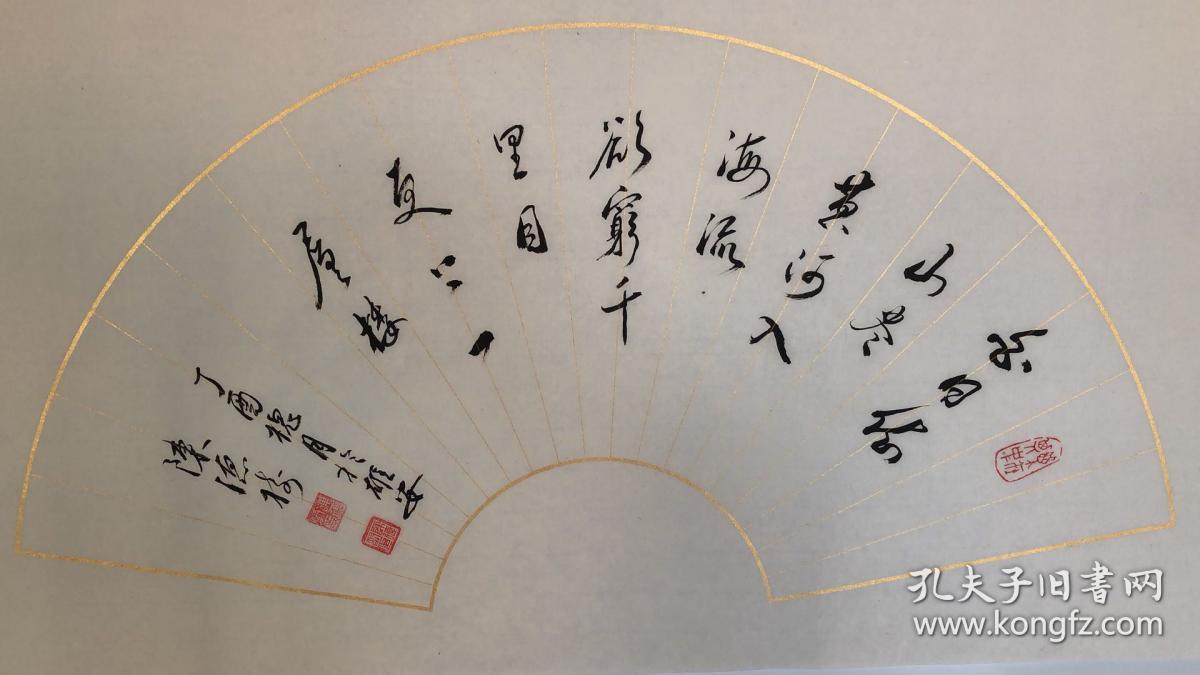 白日依
山尽
黄河入
海流
欲穷千
里目
更上一
层楼
丁酉槐月于雄安
孔夫子旧书网
www.kongfz.com